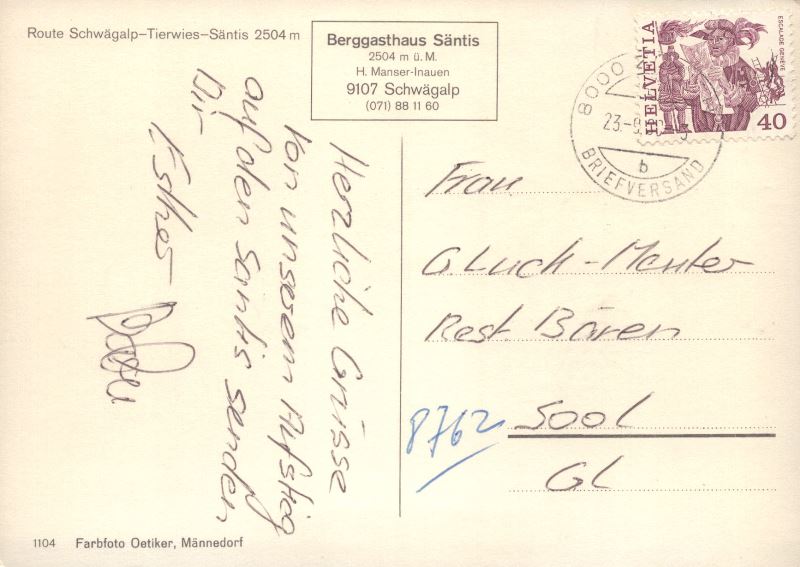 Route Schwägalp–Tierwies–Säntis 2504 m
Berggasthaus Säntis
2504 m ü. M.
H. Manser-Inauen
9107 Schwägalp
(071) 88 11 60
HELVETIA
ESCALADE GENÈVE
40
8000
23.-9.
b
BRIEFVERSAND
Herzliche Grüsse
von unserem Aufstig
auf den Santis senden
Dir
Esther
Frau
G. Luck-Menter
Rest. Bären
8762 Sool
GL
1104 Farbfoto Oetiker, Männedorf